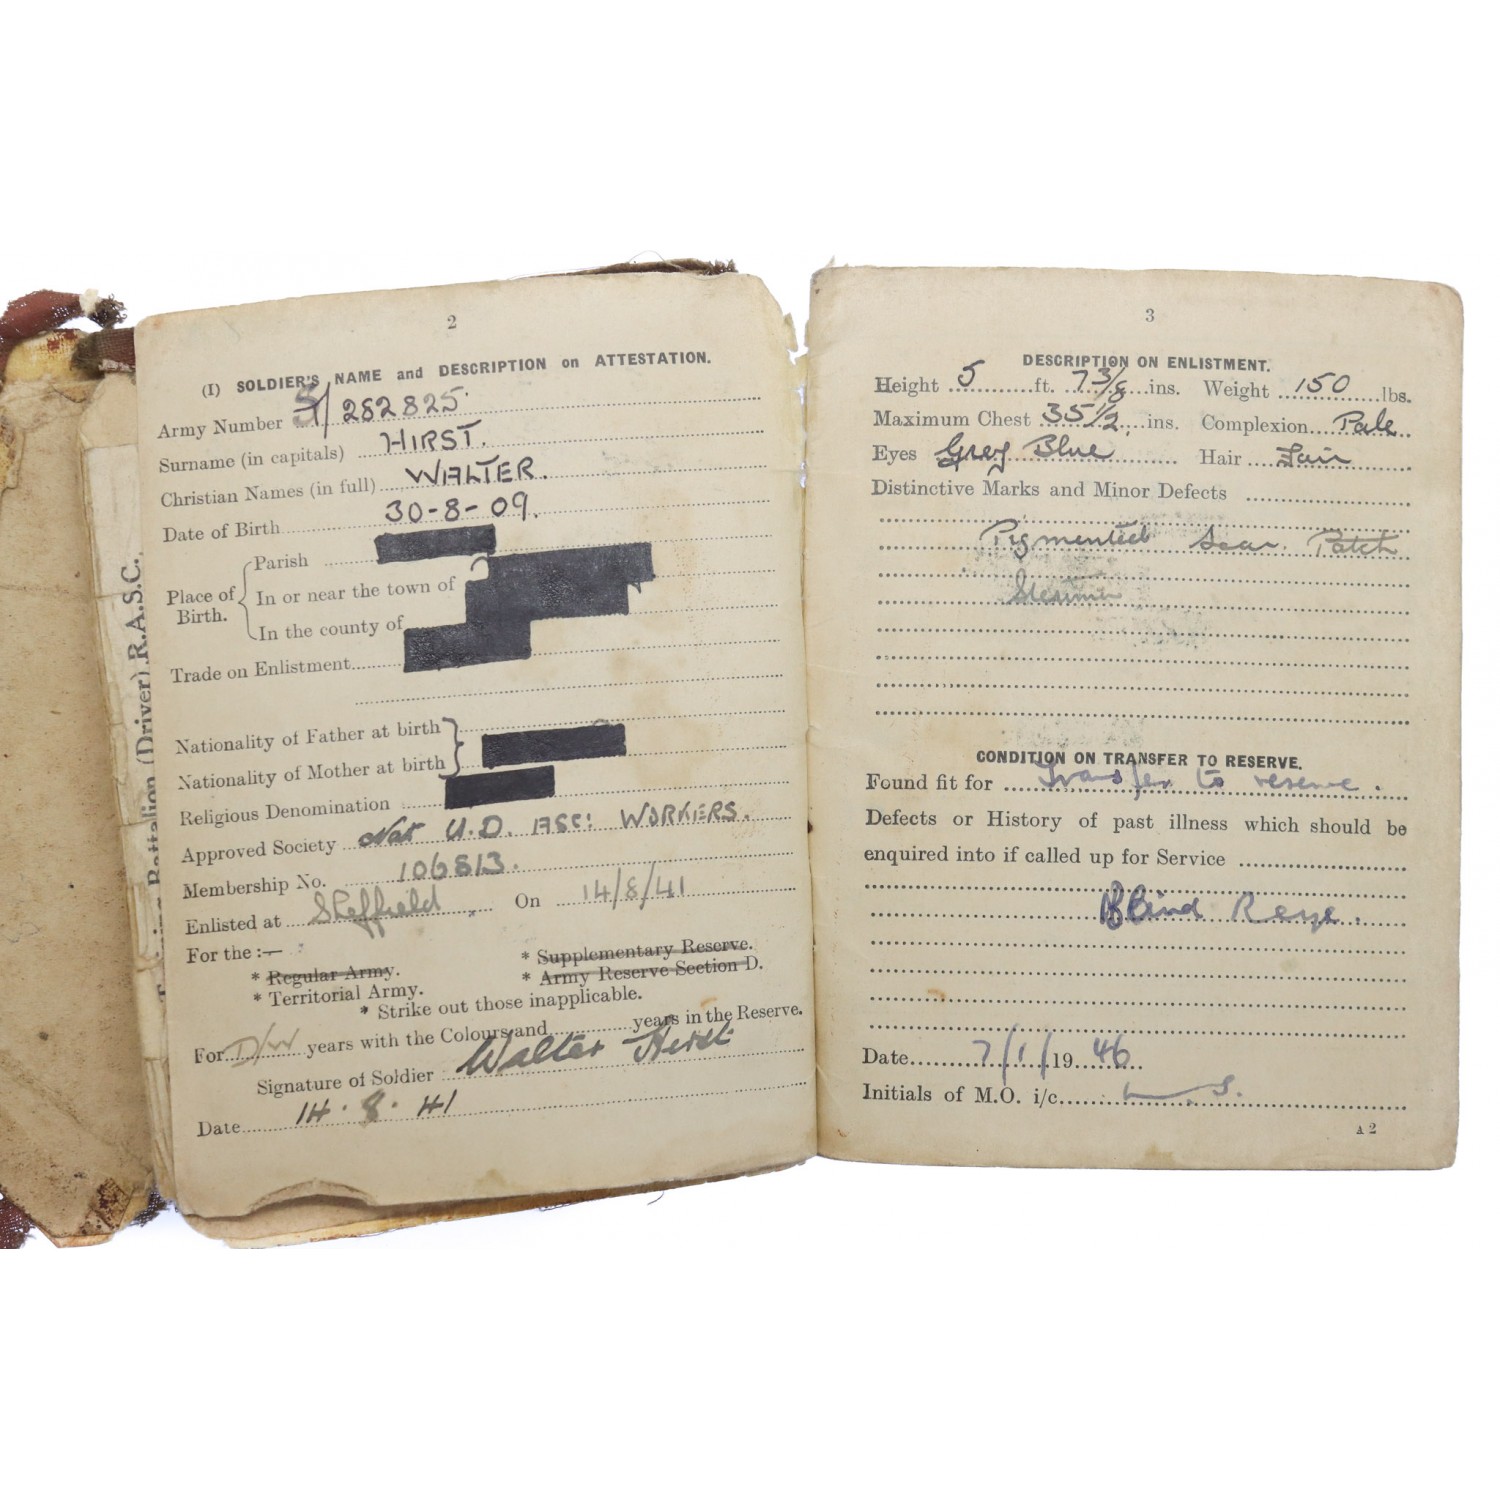 Training Battalion (Driver) R.A.S.C.
2
(I) SOLDIER'S NAME and DESCRIPTION on ATTESTATION.
Army Number S/282825
Surname (in capitals) HIRST.
Christian Names (in full) WALTER.
Date of Birth 30-8-09.
Place of Birth. { Parish
In or near the town of
In the county of
Trade on Enlistment
Nationality of Father at birth }
Nationality of Mother at birth
Religious Denomination
Approved Society Nat U.D. ASC: WORKERS.
Membership No. 106813.
Enlisted at Sheffield On 14/8/41
For the :—
* Regular Army. * Supplementary Reserve.
* Territorial Army. * Army Reserve Section D.
* Strike out those inapplicable.
For D/W years with the Colours and years in the Reserve.
Signature of Soldier Walter Hirst
Date 14.8.41
3
DESCRIPTION ON ENLISTMENT.
Height 5 ft. 7 3/8 ins. Weight 150 lbs.
Maximum Chest 35 1/2 ins. Complexion Pale
Eyes Grey Blue Hair Fair
Distinctive Marks and Minor Defects
Pigmented Scar. Patch
CONDITION ON TRANSFER TO RESERVE.
Found fit for transfer to reserve.
Defects or History of past illness which should be
enquired into if called up for Service
Date 7/1/1946
Initials of M.O. i/c
A 2